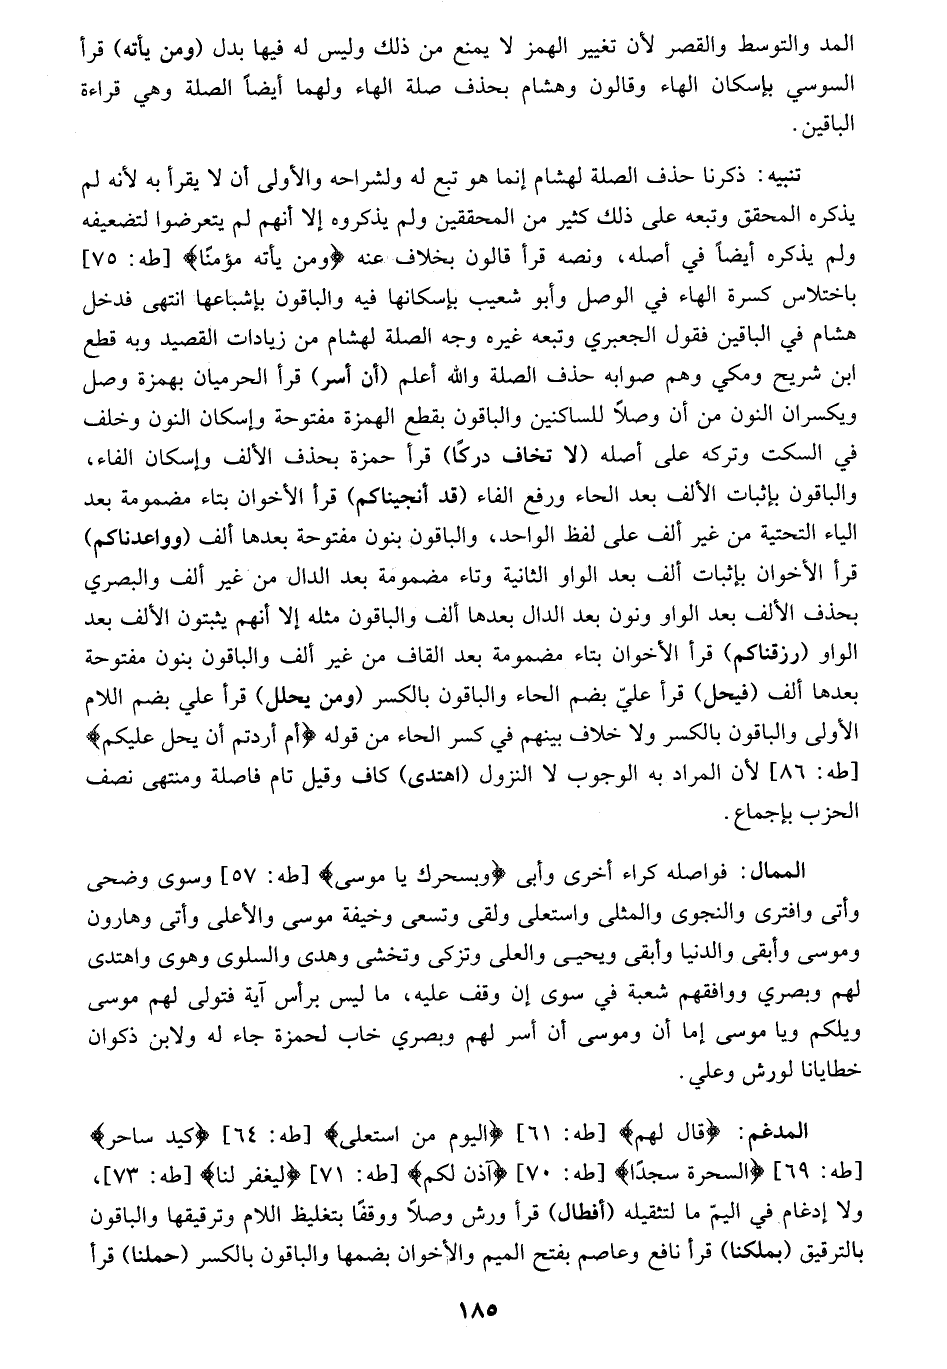 المد والتوسط والقصر لأن تغيير الهمز لا يمنع من ذلك وليس له فيها بدل (ومن يأته) قرأ
السوسي بإسكان الهاء وقالون وهشام بحذف صلة الهاء ولهما أيضاً الصلة وهي قراءة
الباقين.
تنبيه: ذكرنا حذف الصلة لهشام إنما هو تبع له ولشراحه والأولى أن لا يقرأ به لأنه لم
يذكره المحقق وتبعه على ذلك كثير من المحققين ولم يذكروه إلا أنهم لم يتعرضوا لتضعيفه
ولم يذكره أيضاً في أصله، ونصه قرأ قالون بخلاف عنه ﴿ومن يأته مؤمنًا﴾ [طه: ٧٥]
باختلاس كسرة الهاء في الوصل وأبو شعيب بإسكانها فيه والباقون بإشباعها انتهى فدخل
هشام في الباقين فقول الجعبري وتبعه غيره وجه الصلة لهشام من زيادات القصيد وبه قطع
ابن شريح ومكي وهم صوابه حذف الصلة والله أعلم (أن أسر) قرأ الحرميان بهمزة وصل
ويكسران النون من أن وصلاً للساكنين والباقون بقطع الهمزة مفتوحة وإسكان النون وخلف
في السكت وتركه على أصله (لا تخاف دركًا) قرأ حمزة بحذف الألف وإسكان الفاء،
والباقون بإثبات الألف بعد الحاء ورفع الفاء (قد أنجيناكم) قرأ الأخوان بتاء مضمومة بعد
الياء التحتية من غير ألف على لفظ الواحد، والباقون بنون مفتوحة بعدها ألف (وواعدناكم)
قرأ الأخوان بإثبات ألف بعد الواو الثانية وتاء مضمومة بعد الدال من غير ألف والبصري
بحذف الألف بعد الواو ونون بعد الدال بعدها ألف والباقون مثله إلا أنهم يثبتون الألف بعد
الواو (رزقناكم) قرأ الأخوان بتاء مضمومة بعد القاف من غير ألف والباقون بنون مفتوحة
بعدها ألف (فيحل) قرأ عليّ بضم الحاء والباقون بالكسر (ومن يحلل) قرأ علي بضم اللام
الأولى والباقون بالكسر ولا خلاف بينهم في كسر الحاء من قوله ﴿أم أردتم أن يحل عليكم﴾
[طه: ٨٦] لأن المراد به الوجوب لا النزول (اهتدى) كاف وقيل تام فاصلة ومنتهى نصف
الحزب بإجماع.
الممال: فواصله كراء أخرى وأبى ﴿وبسحرك يا موسى﴾ [طه: ٥٧] وسوى وضحى
وأتى وافترى والنجوى والمثلى واستعلى ولقى وتسعى وخيفة موسى والأعلى وأتى وهارون
وموسى وأبقى والدنيا وأبقى ويحيـى والعلى وتزكى وتخشى وهدى والسلوى وهوى واهتدى
لهم وبصري ووافقهم شعبة في سوى إن وقف عليه، ما ليس برأس آية فتولى لهم موسى
ويلكم ويا موسى إما أن وموسى أن أسر لهم وبصري خاب لحمزة جاء له ولابن ذكوان
خطايانا لورش وعلي.
المدغم: ﴿قال لهم﴾ [طه: ٦١] ﴿اليوم من استعلى﴾ [طه: ٦٤] ﴿كيد ساحر﴾
[طه: ٦٩] ﴿السحرة سجدًا﴾ [طه: ٧٠] ﴿آذن لكم﴾ [طه: ٧١] ﴿ليغفر لنا﴾ [طه: ٧٣]،
ولا إدغام في اليمّ ما لتثقيله (أفطال) قرأ ورش وصلاً ووقفًا بتغليظ اللام وترقيقها والباقون
بالترقيق (بملكنا) قرأ نافع وعاصم بفتح الميم والأخوان بضمها والباقون بالكسر (حملنا) قرأ
١٨٥